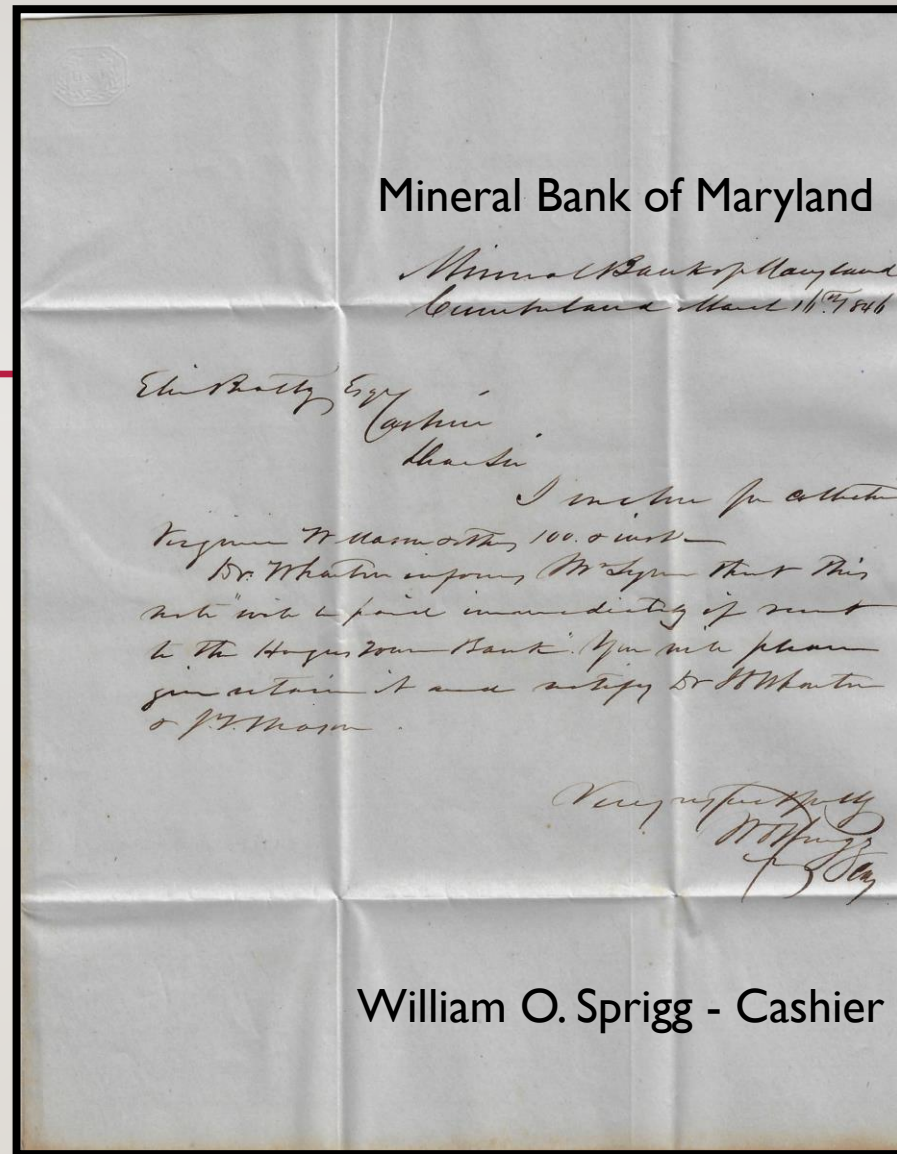 Mineral Bank of Maryland
Mineral Bank of Maryland
Cumberland March 16th 1846
Elie Beatty Esqr
Cashier
Dear Sir
I enclose for collection
Virginia W Mason
Dr. Wharton informs Mr Lynn that this
note "will be paid immediately if sent
to the Hagerstown Bank". You will please
retain it and notify Dr Wharton
& J. T. Mason.
Very respectfully
Sprigg
William O. Sprigg - Cashier